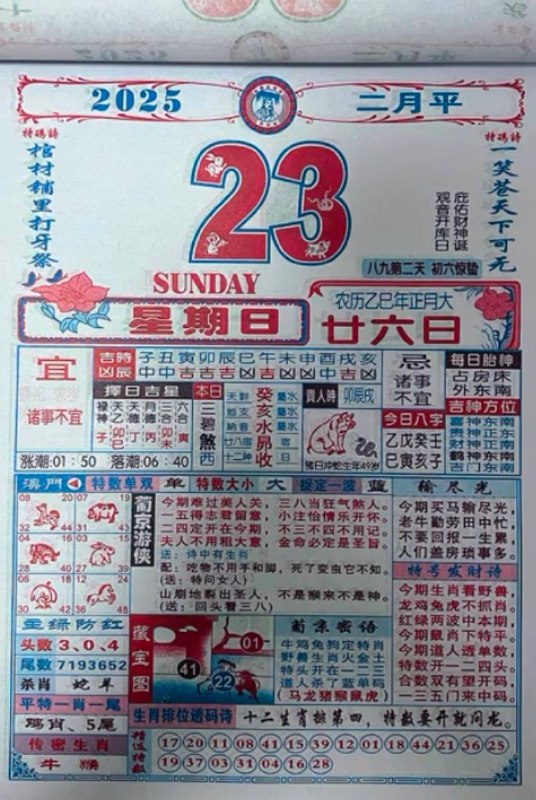 2025
二月平
特碼詩
棺材铺里打牙祭
特碼詩
一笑茗天下可无
23
庇佑财神诞
观音开库日
SUNDAY
八九第二天 初六惊蛰
星期日
农历乙巳年正月大
廿六日
宜
诸事不宜
吉時
凶辰
子丑寅卯辰巳午未申酉戌亥
忌
诸事不宜
每日胎神
占房床
外东南
擇日吉星
本日
三碧煞西
癸亥水昴收
貴人時
卯辰戌
猪日冲蛇生年49岁
今日八字
乙戊癸壬
巳寅亥子
吉神方位
喜神东南
贵神正东
财神正南
鹤神东南
吉门东南
涨潮:01:50 落潮:06:40
澳門
特数单双
单
特数大小
大
捉定一波
蓝
输尽光
08 20
32 44
07 19
31 43
04 16
28 40
03 15
27 39
06 18
30 42
12 24
36 48
葡京游侠
今期难过美人关，三八当狂气煞人。
一五得志君留意，小注怡情乐开怀。
二四定开在今期，不三不四不用记。
夫人不用租大意，金命必定是圣旨。
送：诗中有生肖
配：吃物不用手和脚，死了变虫它不知。
(送：特问女人)
山崩地裂出圣人，不是猴来不是神。
(送：回头看三八)
今期买马输尽光，
老牛勤劳田中忙，
不要回报一生累，
人们盖房琐事多。
特号发财诗
今期生肖看野兽，
龙鸡兔虎不抓肖。
红绿两波中本期，
今期鼠肖下特平。
今期道人透单数，
特数开一二四头。
合数双有望开码，
一三五门来中码。
主绿防红
头数3.0.4
尾数7193652
杀肖 蛇羊
平特一肖一尾
鸡肖、5尾
传密生肖
牛 猴
藏宝图
01
41
22
葡京密语
牛鸡兔狗定特肖
野兽生肖火金土
特头开在一二三
道人杀了蓝单码
(马龙猪猴鼠虎)
生肖排位透码诗
十二生肖排第四，特数要开就问龙。
精选特数
17 20 11 08 41 15 39 12 01 18 44 21 36 25
19 37 03 31 04 16 28